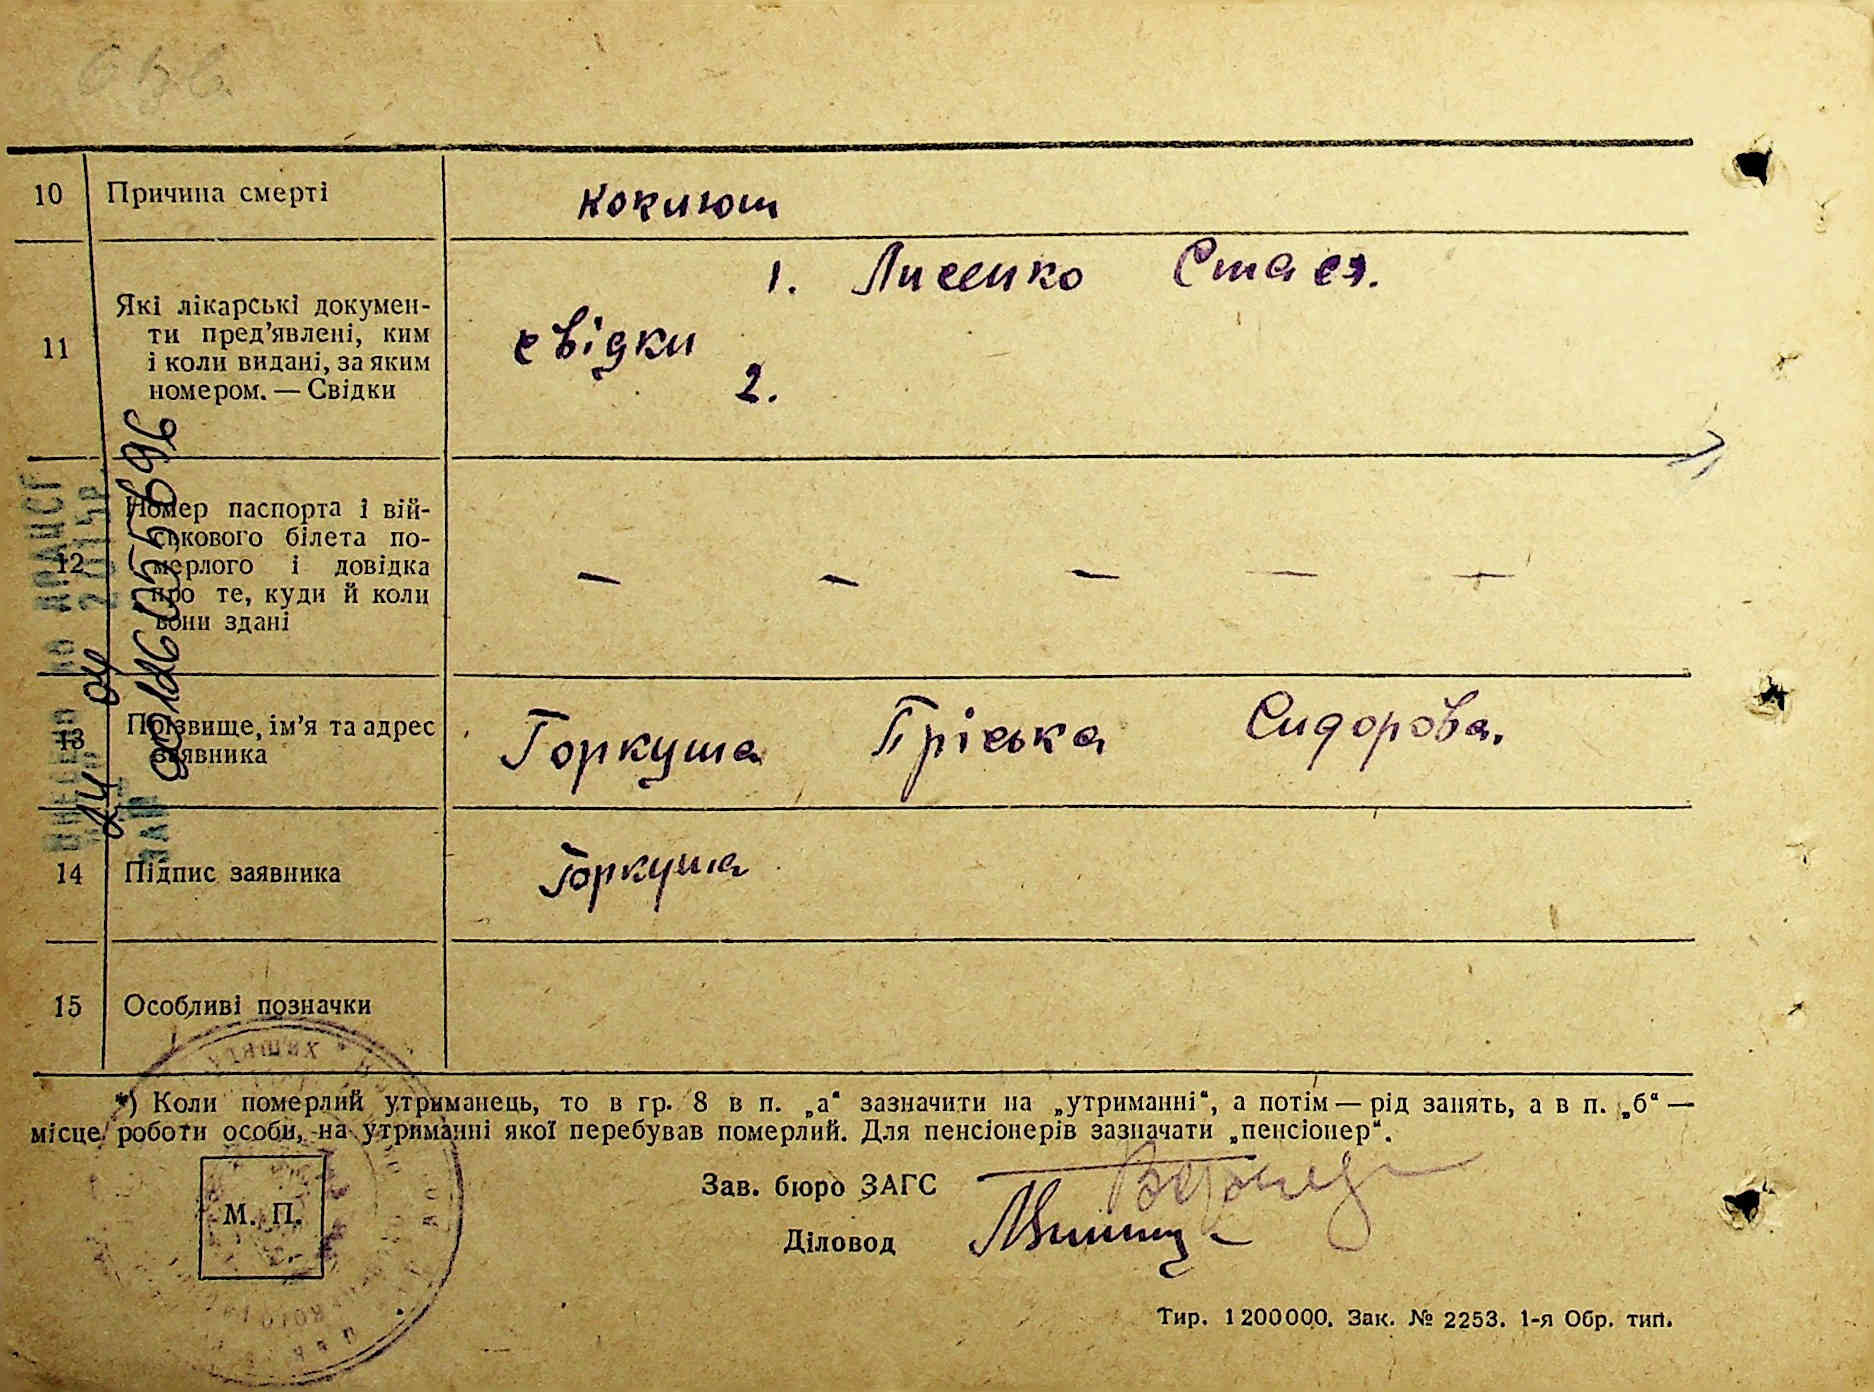 10 Причина смерті кокиюш
11 Які лікарські докумен-
ти пред'явлені, ким
і коли видані, за яким
номером. — Свідки
1. Лисенко Стася.
свідки
2.
12 Номер паспорта і вій-
ськового білета по-
мерлого і довідка
про те, куди й коли
вони здані
— — — — —
13 Прізвище, ім'я та адрес
заявника
Горкуша Пріська Сидорова.
14 Підпис заявника Горкуша
15 Особливі позначки
*) Коли померлий утриманець, то в гр. 8 в п. „а“ зазначити на „утриманні“, а потім — рід занять, а в п. „б“ —
місце роботи особи, на утриманні якої перебував померлий. Для пенсіонерів зазначати „пенсіонер“.
Зав. бюро ЗАГС
М. П.
Діловод
Тир. 1200000. Зак. № 2253. 1-я Обр. тип.